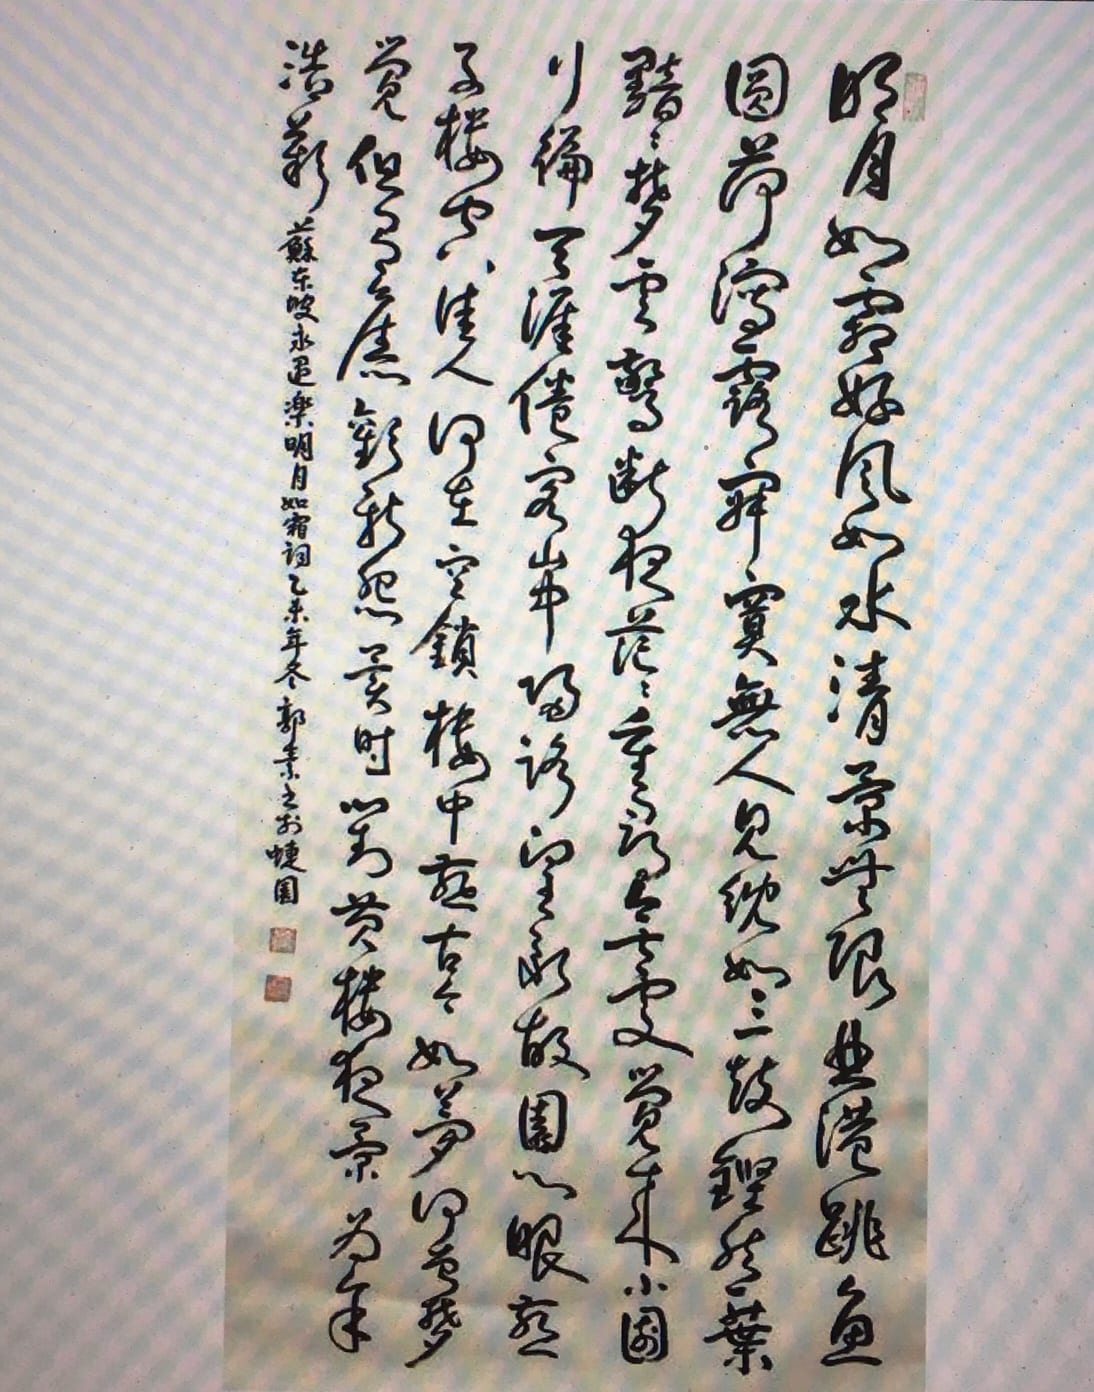 明月如霜好風如水清景無限曲港跳魚
圓荷瀉露寂寞無人見紞如三鼓鏗然一葉
黯〻夢雲驚斷夜茫〻重尋無處覺來小園
行徧天涯倦客山中歸路望斷故園心眼燕
子樓空佳人何在空鎖樓中燕古今如夢何曾夢
覺但有舊歡新怨異時對黃樓夜景為余
浩歎 蘇東坡永遇樂明月如霜詞乙未年冬郭